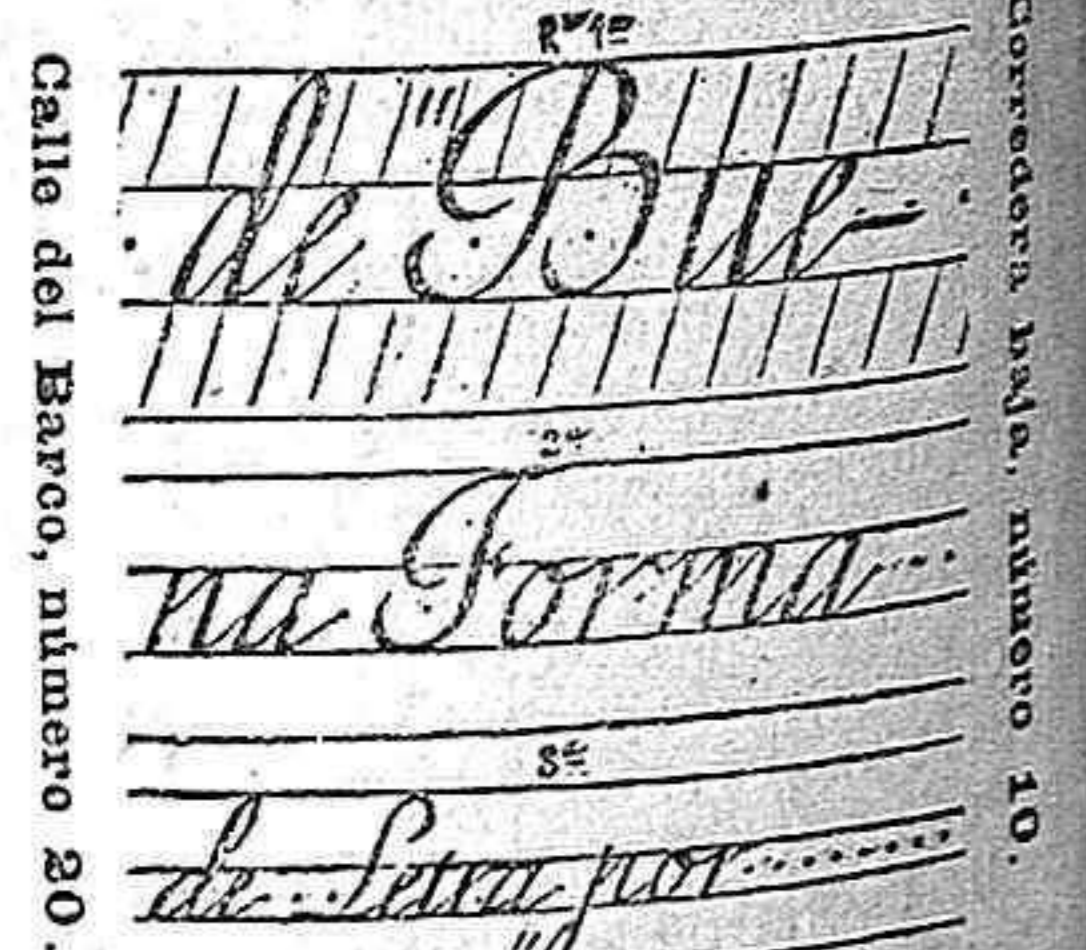 Calle del Barco, número 20.
Rª 1ª
de Bue
2ª
na Forma
3ª
de Letra por
Corredera baja, número 10.